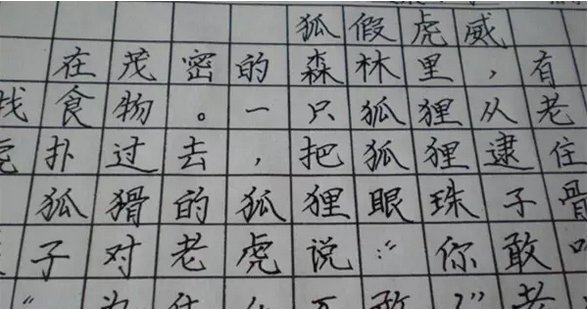 狐假虎威
在茂密的森林里，有
找食物。一只狐狸从老
虎扑过去，把狐狸逮住
狐猾的狐狸眼珠子骨
子对老虎说：“你敢
“为什么不敢？”老